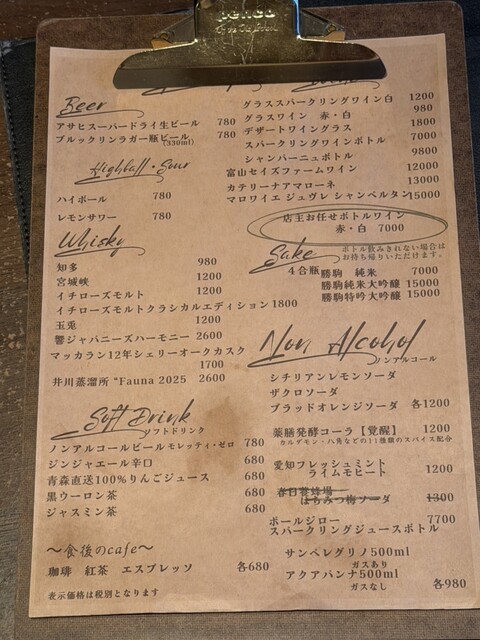 penco
Beer
アサヒスーパードライ生ビール 780
ブルックリンラガー瓶ビール 780
(330ml)
Highball・Sour
ハイボール 780
レモンサワー 780
Whisky
知多 980
宮城峡 1200
イチローズモルト 1200
イチローズモルトクラシカルエディション 1800
玉兎 1200
響ジャパニーズハーモニー 2600
マッカラン12年シェリーオークカスク
1700
井川蒸溜所 "Fauna 2025 2600
Soft Drink
ソフトドリンク
ノンアルコールビールモレッティ・ゼロ 780
ジンジャエール辛口 680
青森直送100%りんごジュース 680
黒ウーロン茶 680
ジャスミン茶 680
〜食後のcafe〜
珈琲 紅茶 エスプレッソ 各680
表示価格は税別となります
グラススパークリングワイン白 1200
グラスワイン 赤・白 980
デザートワイングラス 1800
スパークリングワインボトル 7000
シャンパーニュボトル 9800
富山セイズファームワイン 12000
カテリーナアマローネ 13000
マロワイエ ジュヴレ シャンベルタン15000
店主お任せボトルワイン
赤・白 7000
ボトル飲みきれない場合は
お持ち帰りいただけます。
Sake
4合瓶 勝駒 純米 7000
勝駒 純米大吟醸 15000
勝駒特吟大吟醸 15000
Non Alcohol
ノンアルコール
シチリアンレモンソーダ
ザクロソーダ
ブラッドオレンジソーダ 各1200
薬膳発酵コーラ【覚醒】 1200
カルダモン・八角などの11種類のスパイス配合
愛知フレッシュミント
ライムモヒート 1200
春日養蜂場
はちみつ梅ソーダ 1300
ポールジロー 7700
スパークリングジュースボトル
サンペレグリノ500ml
ガスあり
アクアパンナ500ml
ガスなし 各980